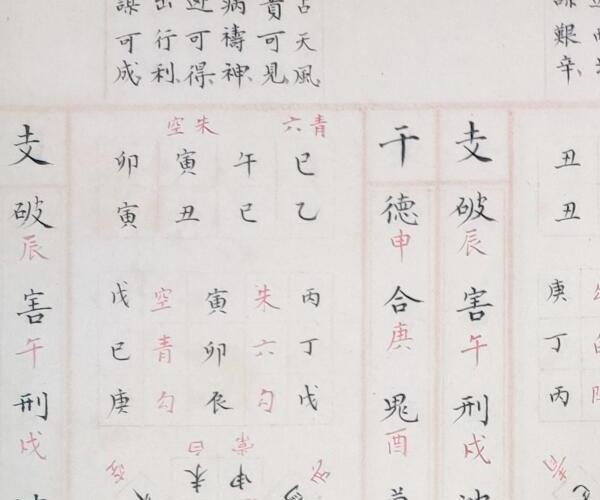 艱辛
丑丑
庚丁丙
支
破辰害午刑戌
干
德申合庚鬼酉
占天風
貴可見
病禱神
可得
出行利
謀可成
青六
朱空
巳乙
午巳
寅丑
卯寅
丙丁戊
朱六勾
寅卯辰
空青勾
戊己庚
常白
申未
支
破辰害午刑戌